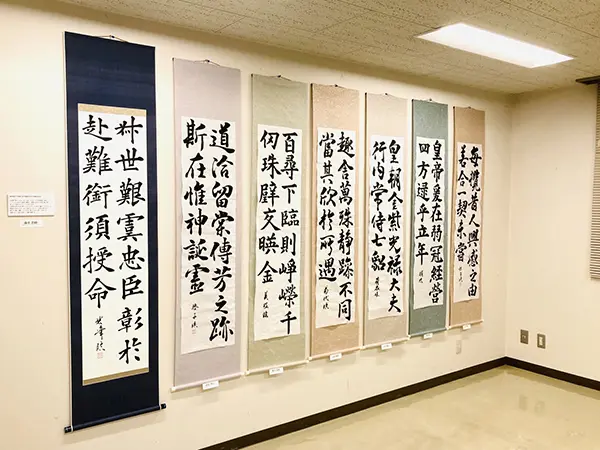 每攬昔人興感之由
若合一契未嘗
皇帝爰在弱冠經營
四方逮乎立年
皇朝金紫光禄大夫
行内常侍七貂
趣舍萬殊靜躁不同
當其欣於所遇
百尋下臨則崢嶸千
仞珠璧交暎金
道洽留棠傳芳之跡
斯在惟神誕靈
叔世艱虞忠臣彰於
赴難銜須授命